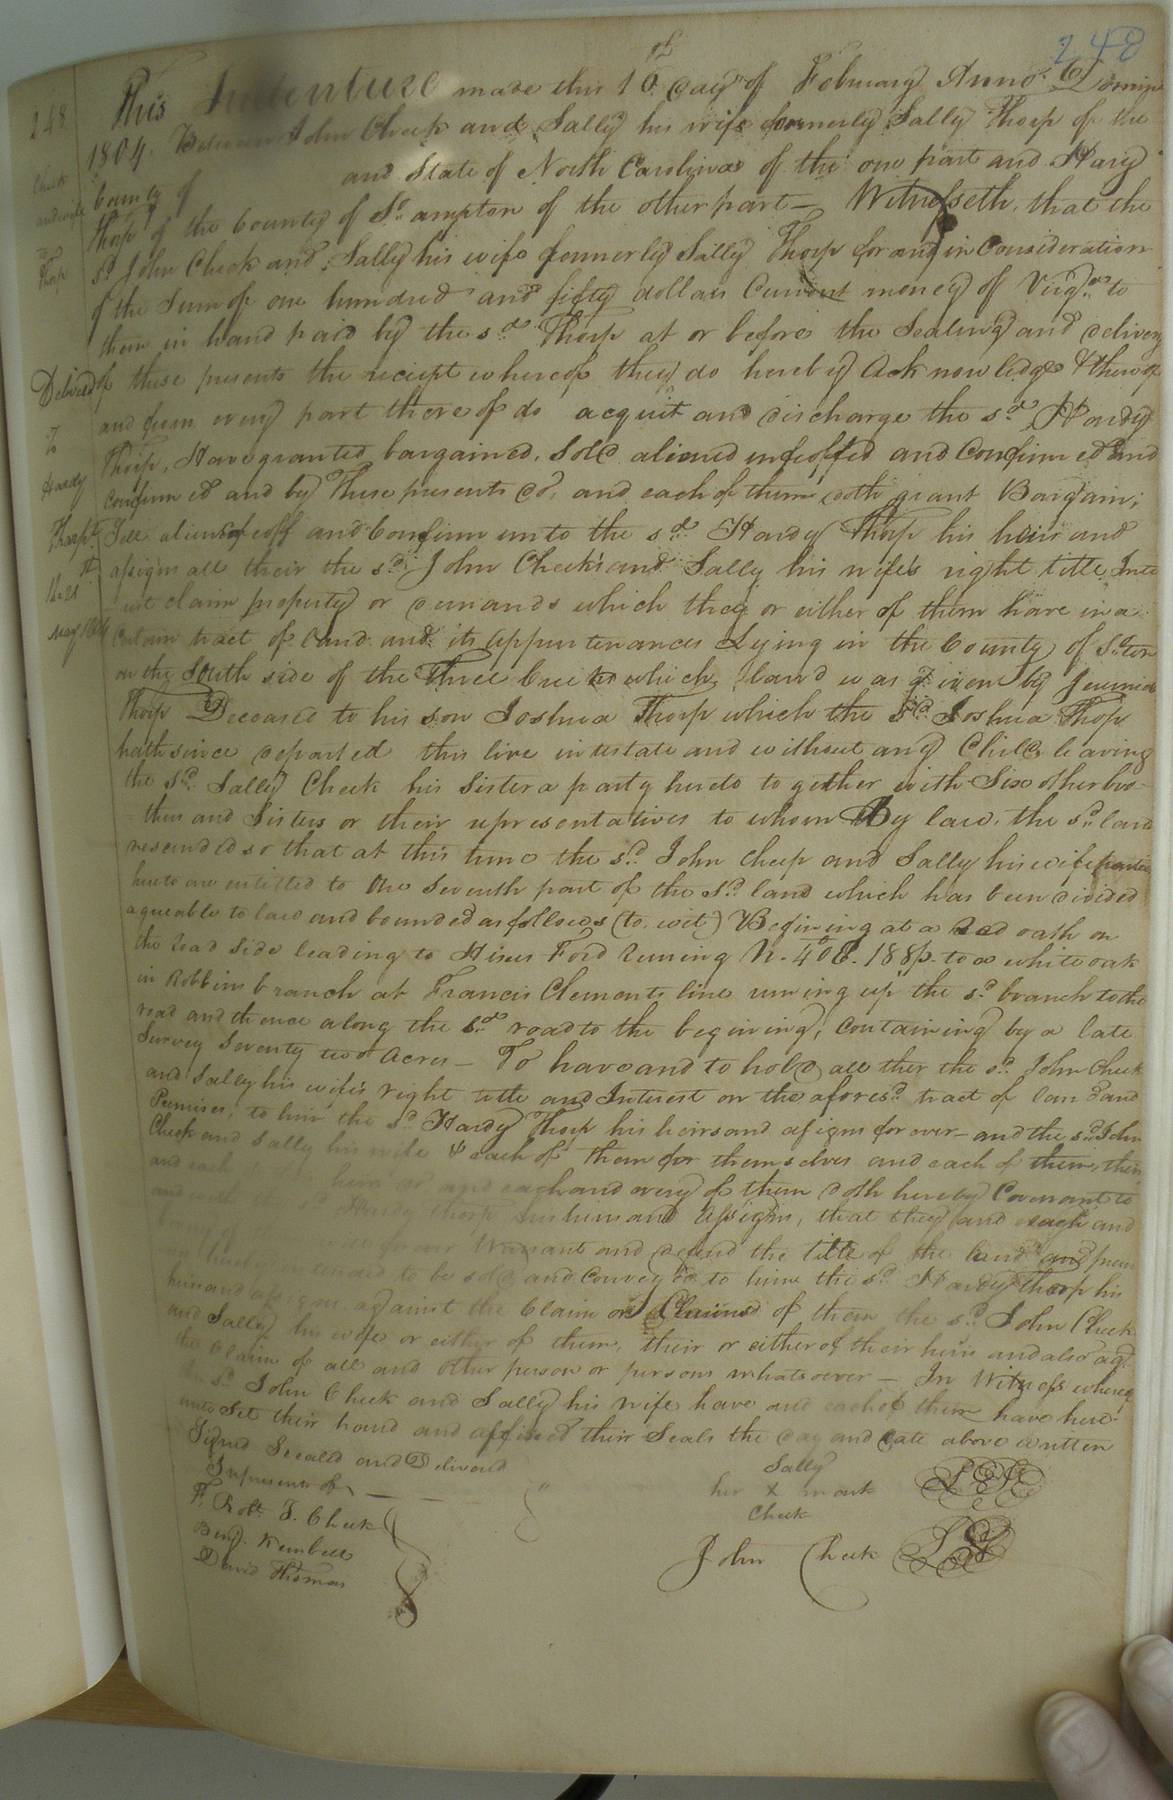 248
248
Cheek
and wife
to
Thorp
Delivered
To
Hardy
Thorp
21st
May 1804
of
This Indenture made this 10 day of February Anno Domini
1804. Between John Cheek and Sally his wife formerly Sally Thorp of the
County of and State of North Carolina of the one part and Hardy
Thorp of the County of So.ampton of the other part — Witnesseth, that the
sd. John Cheek and Sally his wife formerly Sally Thorp for and in Consideration
of the Sum of one hundred and fifty dollars Current money of Virga. to
them in hand paid by the sd. Thorp at or before the Sealing and delivery
of these presents the receipt whereof they do hereby Acknowledge & thereof
and from every part thereof do acquit and discharge the sd. Hardy
Thorp, Have granted bargained, Sold aliened enfeoffed and Confirmed and
Confirmed and by These presents do, and each of them doth grant Bargain,
Sell alien enfeoff and Confirm unto the sd. Hardy Thorp his heirs and
assigns all their the sd. John Cheek's and Sally his wife's right title Inte
rest claim property or demands which they or either of them have in a
Certain tract of land and its appurtenances Lying in the County of So.ton
on the South side of the Three Creeks which land was given by Jeremiah
Thorp Deceased to his son Joshua Thorp which the sd. Joshua Thorp
hath since departed this live intestate and without any Child leaving
the sd. Sally Cheek his Sister a party hereto together with Six other bro-
thers and Sisters or their representatives to whom By law, the sd. land
descended so that at this time the sd. John Cheep and Sally his wife parties
hereto are entitled to the Seventh part of the sd. land which has been divided
agreable to law and bounded as follows (to wit) Begining at a Red oath on
the road side leading to Hines Ford Running N. 40 E. 188 p. to a white oak
in Robbins branch at Francis Clements line runing up the sd. branch to the
road and thence along the sd. road to the begining, containing by a late
Survey Seventy two Acres — To have and to hold all ther the sd. John Cheek
and Sally his wife's right title and Interest on the aforesd. tract of land and
Premises, to him the sd. Hardy Thorp his heirs and assigns for ever — and the sd. John
Cheek and Sally his wife & each of them for themselves and each of them, their
and each heirs and each and every of them doth hereby Covenant to
and with Hardy Thorp his heirs and Assigns, that they and each and
Warrant and defend the title of the land and prem
hereby to be sold and Convey'd to him the sd. Hardy Thorp his
heirs and assigns against the Claim or Claims of them the sd. John Cheek
and Sally his wife or either of them, their or either of their heirs and also agt.
the Claim of all and other person or persons whatsoever — In Witness whereof
the sd. John Cheek and Sally his wife have and each of them have here
unto Set their hand and affixed their Seals the day and date above written
Signd Sealed and Deliverd
In presents of
F. Robt. T. Cheek
Benj. Kimbell
David Thomas
Sally
her X mark
Cheek
John Cheek